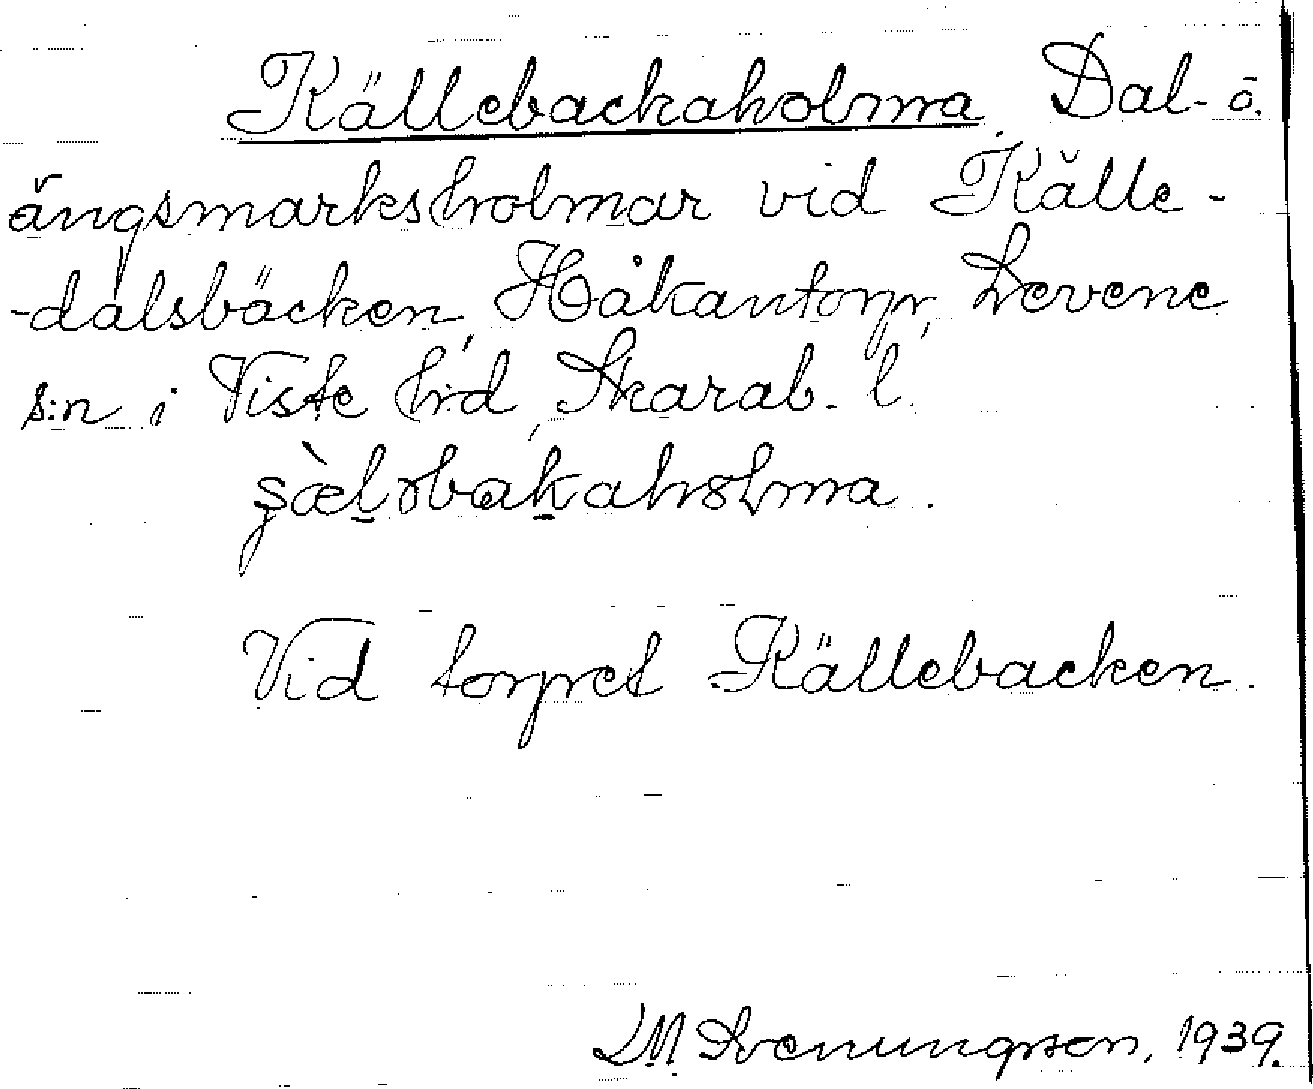 Källebackaholma. Dal- o.
ängsmarksholmar vid Källe-
-dalsbäcken, Håkantorp, Levene
s:n i Viste h:d, Skarab. l.

Vid torpet Källebacken.
LM Svenungsson, 1939.